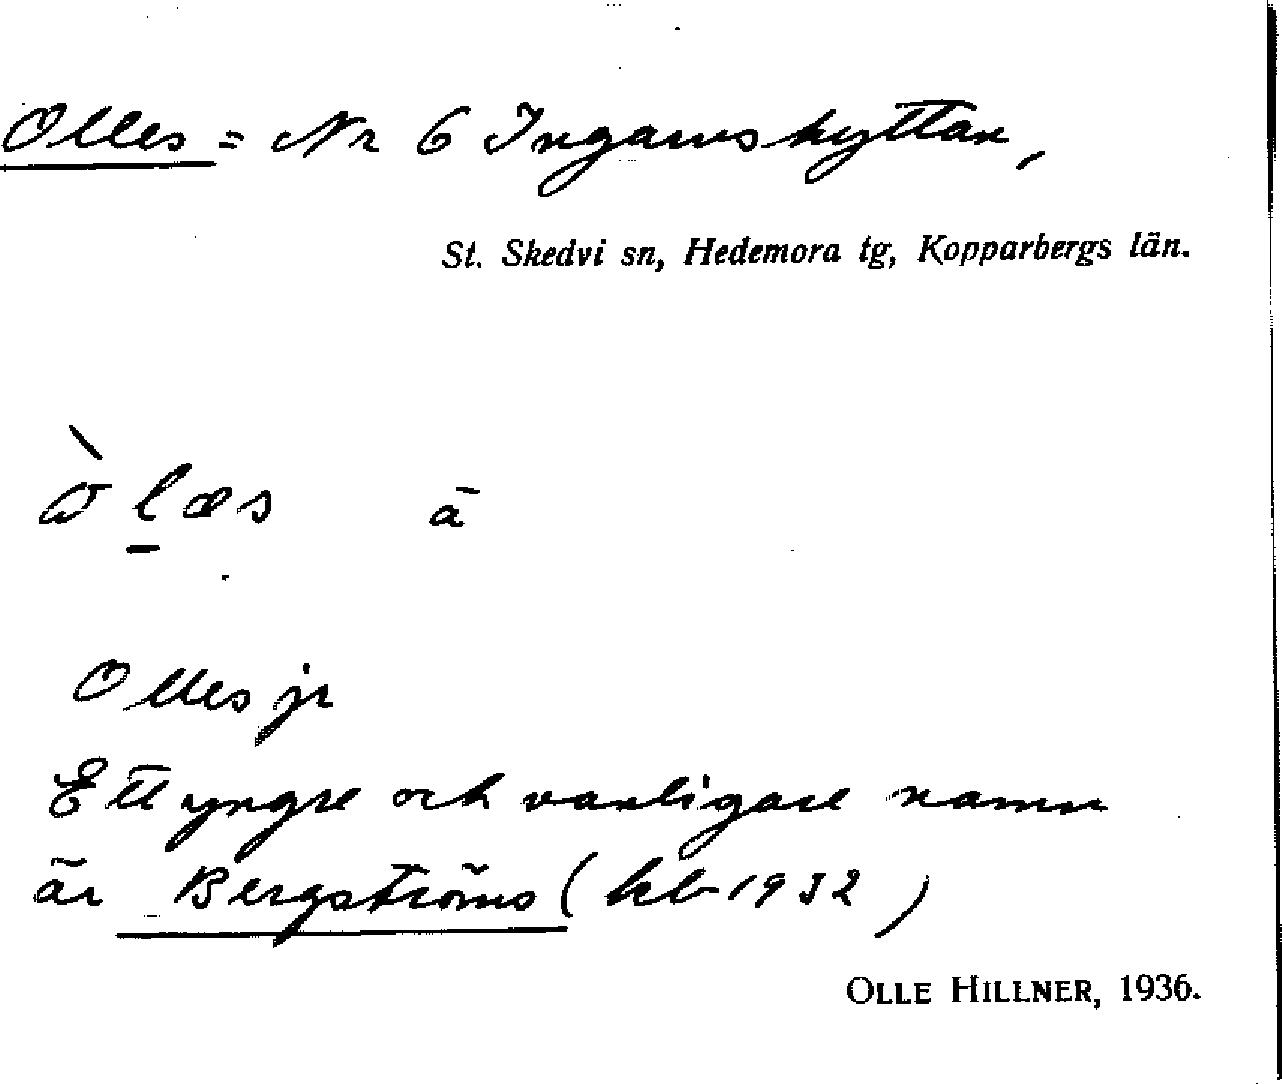 Olles = Nr 6 Ingarvshyttan,
St. Skedvi sn, Hedemora tg, Kopparbergs län.
òlæs ā
Olles jr
Ett yngre och vanligare namn
är Bergströms (kb 1932)
OLLE HILLNER, 1936.